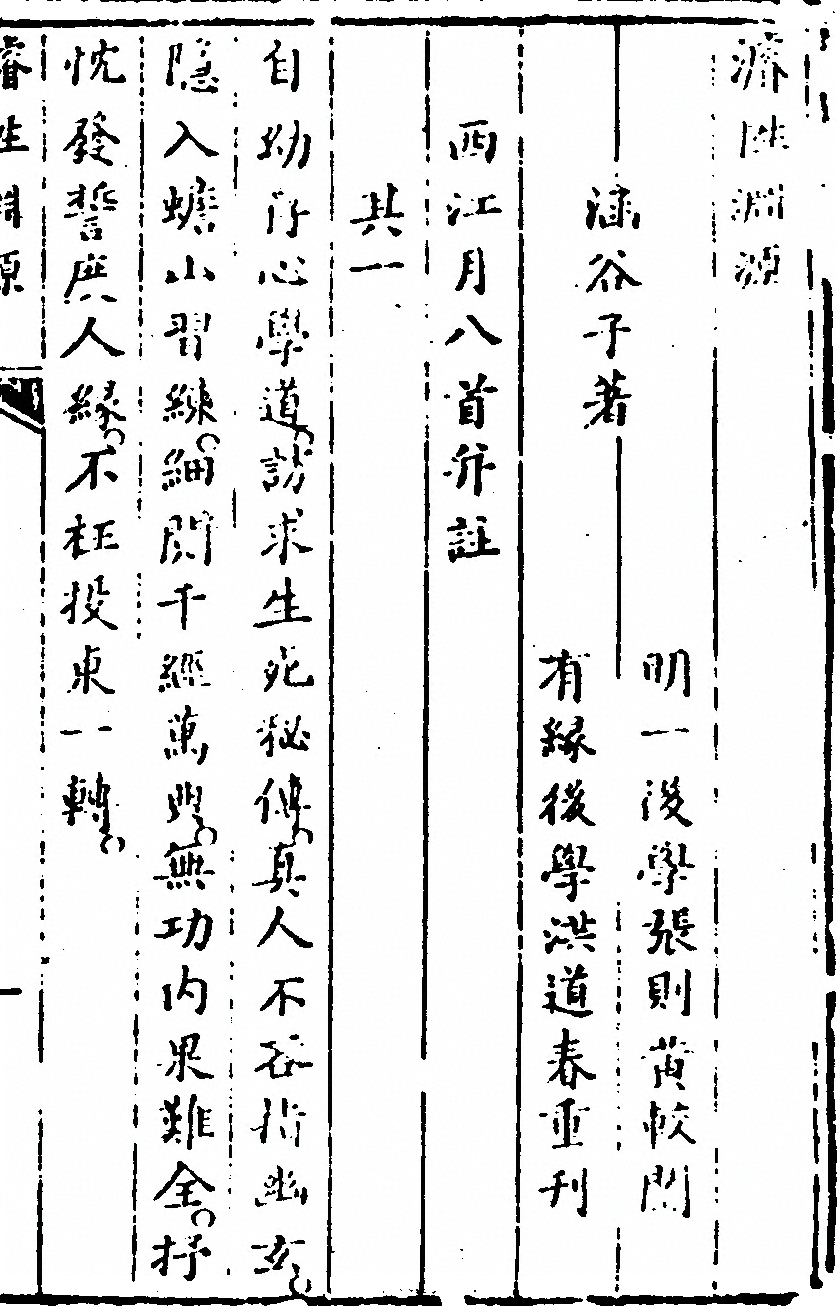 濬性淵源
明一後學張則黃校閱
涵谷子著
有緣後學洪道春重刊
西江月八首并註
其一
自幼存心學道。訪求生死秘傳。真人不吝指幽玄。
隱入蟾山習練。細閱千經萬典。無功內果難全。抒
忱發誓度人緣。不枉投東一轉。
濬性淵源
一